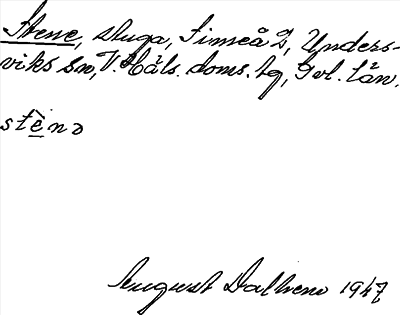 Stene, stuga, Simeå 2, Unders-
viks sn, V. Häls. doms. tg, Gvl. län.
stènə
August Dalhem 1947